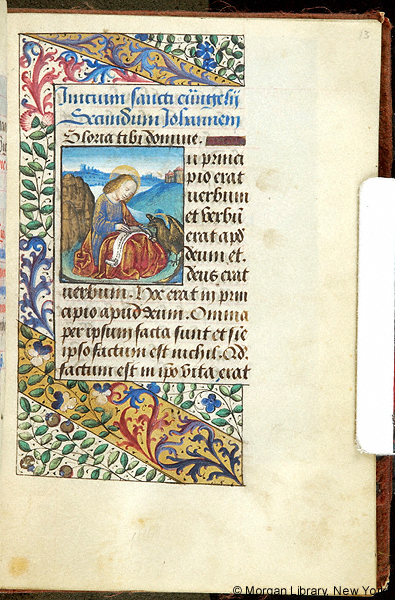 13
Initium sancti eũngelij
Secundum Johannem
Gloria tibi domine.
n princi
pio erat
uerbum
et verbũ
erat apd
deum et.
deus erat
uerbum. Hoc erat in prin
cipio apud deum. Omnia
per ipsum facta sunt et sie
ipso factum est nichil. Qd.
factum est in ipo vita erat
© Morgan Library, New York